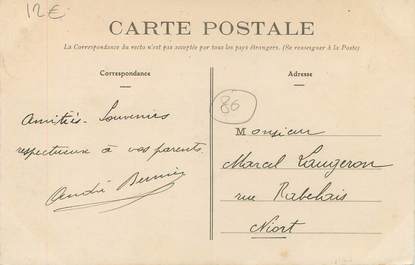 12€
CARTE POSTALE
La Correspondance du recto n'est pas acceptée par tous les pays étrangers. (Se renseigner à la Poste)
Correspondance
Amitiés - Souvenirs
respectueux à vos parents
André
Adresse
86
Monsieur
Marcel Laugeron
rue Rabelais
Niort